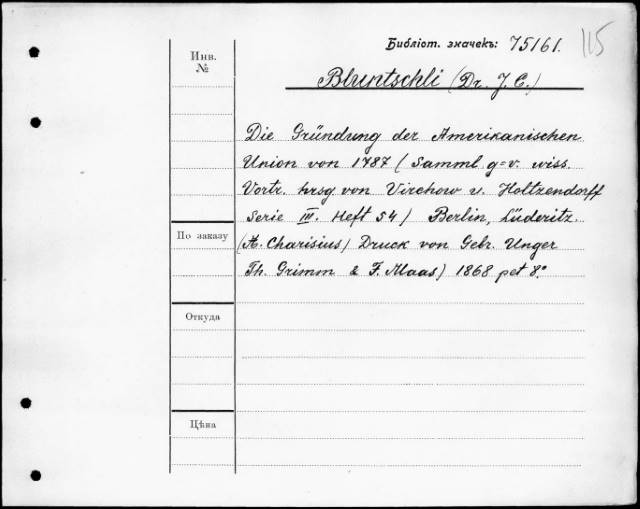 Библіот. значекъ: 75161.
115
Инв.
№
Bluntschli (Dr. J. C.)
Die Gründung der Amerikanischen
Union von 1787 (Samml. g=v. wiss.
Vortr. hrsg. von Virchow u. Holtzendorff
Serie III. Heft 54) Berlin, Lüderitz.
По заказу
(A. Charisius) Druck von Gebr. Unger
Th. Grimm & F. Maas) 1868 pet 8.°
Откуда
Цѣна